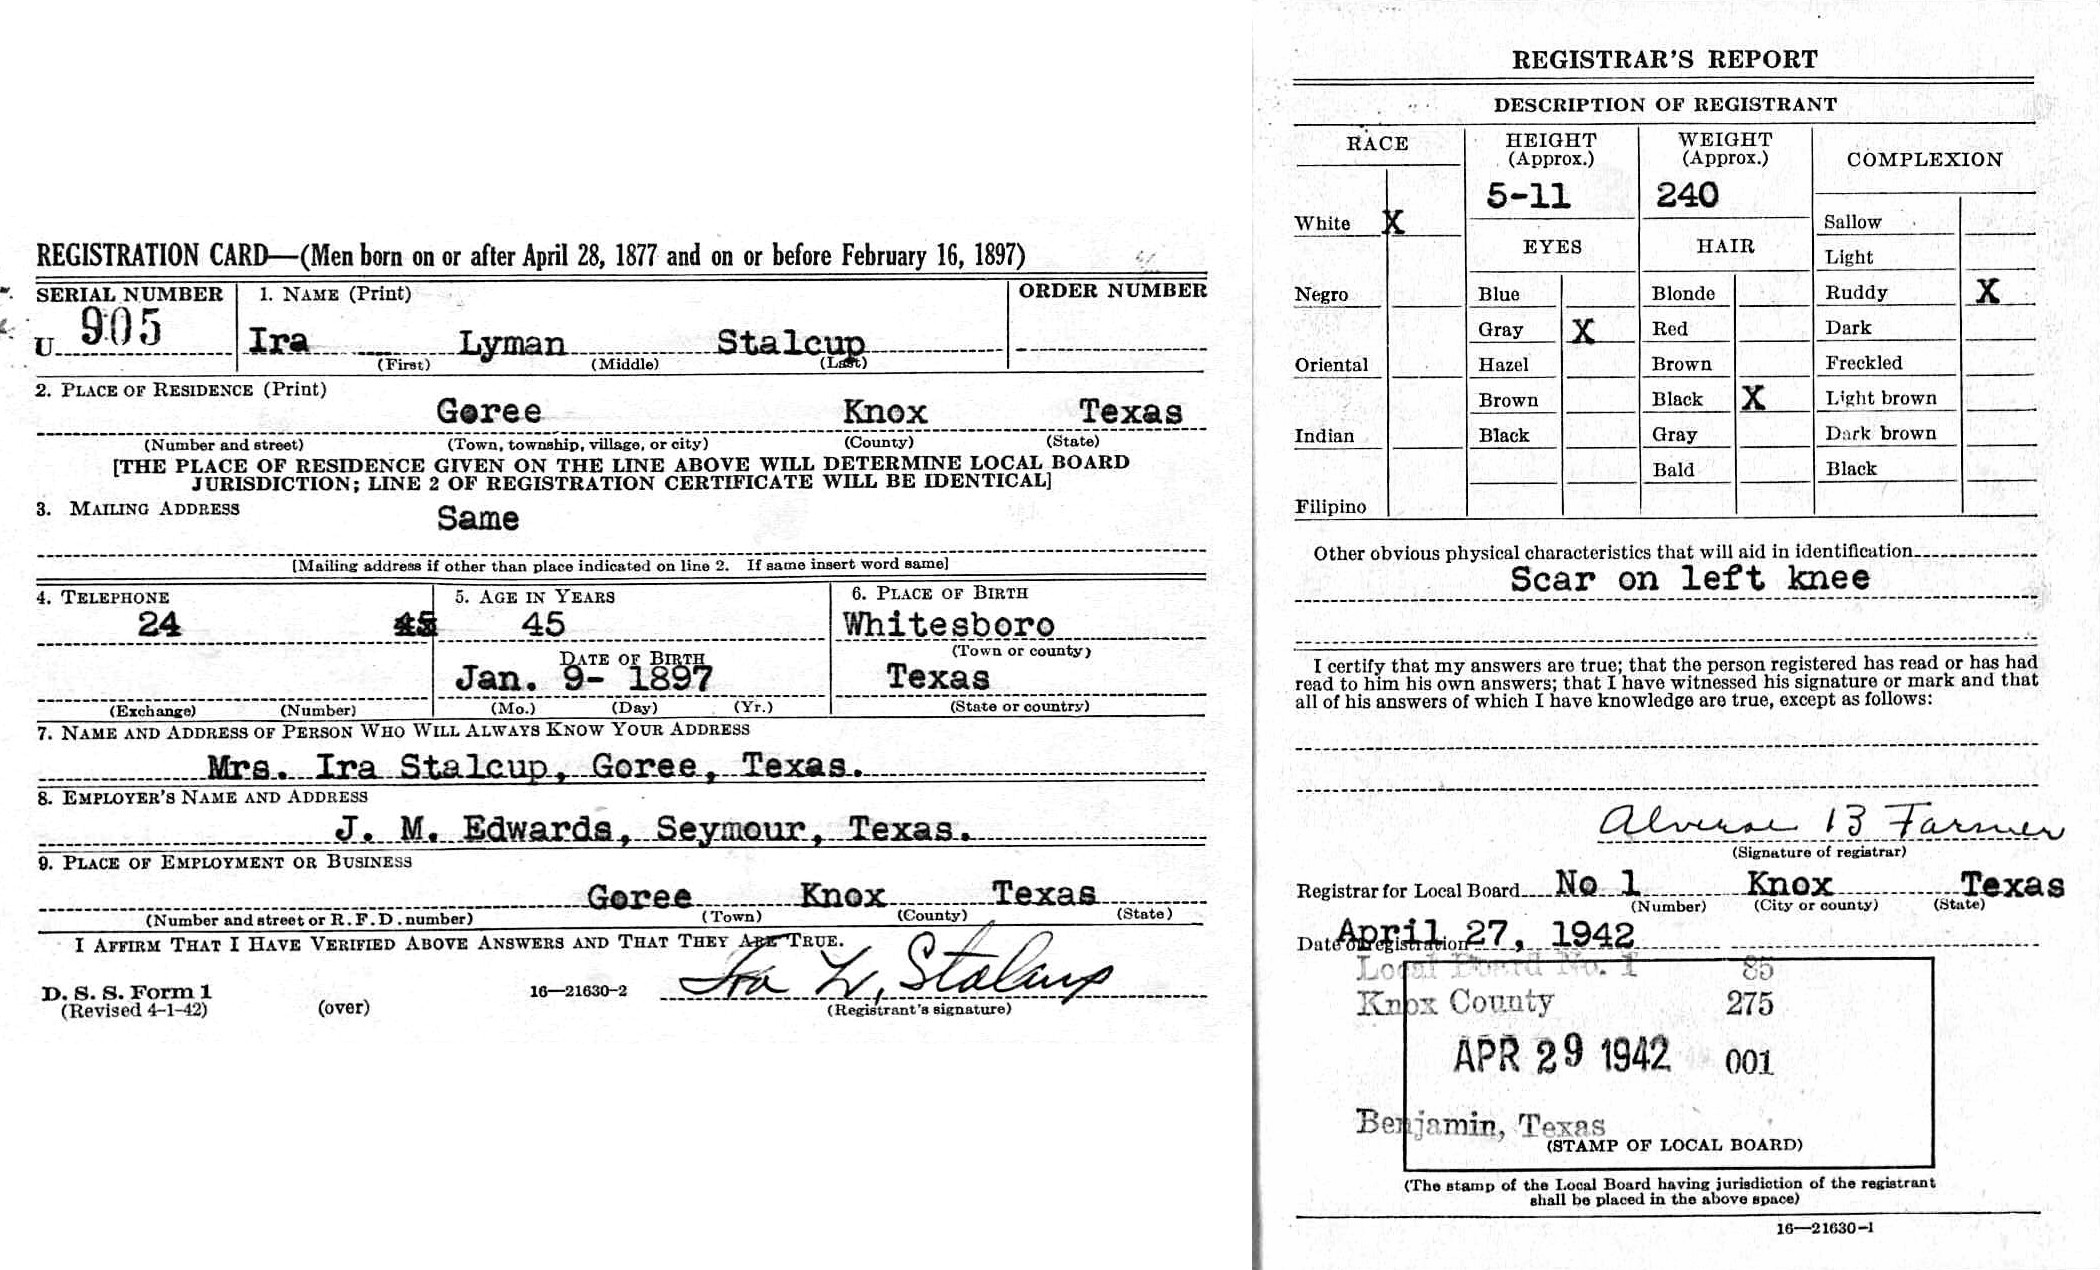 REGISTRATION CARD—(Men born on or after April 28, 1877 and on or before February 16, 1897)
SERIAL NUMBER 1. NAME (Print) ORDER NUMBER
U 905 Ira Lyman Stalcup
(First) (Middle) (Last)
2. PLACE OF RESIDENCE (Print)
Goree Knox Texas
(Number and street) (Town, township, village, or city) (County) (State)
[THE PLACE OF RESIDENCE GIVEN ON THE LINE ABOVE WILL DETERMINE LOCAL BOARD
JURISDICTION; LINE 2 OF REGISTRATION CERTIFICATE WILL BE IDENTICAL]
3. MAILING ADDRESS
Same
[Mailing address if other than place indicated on line 2. If same insert word same]
4. TELEPHONE 5. AGE IN YEARS 6. PLACE OF BIRTH
24 45 45 Whitesboro
(Town or county)
DATE OF BIRTH
Jan. 9- 1897 Texas
(Exchange) (Number) (Mo.) (Day) (Yr.) (State or country)
7. NAME AND ADDRESS OF PERSON WHO WILL ALWAYS KNOW YOUR ADDRESS
Mrs. Ira Stalcup, Goree, Texas.
8. EMPLOYER'S NAME AND ADDRESS
J. M. Edwards, Seymour, Texas.
9. PLACE OF EMPLOYMENT OR BUSINESS
Goree Knox Texas
(Number and street or R. F. D. number) (Town) (County) (State)
I AFFIRM THAT I HAVE VERIFIED ABOVE ANSWERS AND THAT THEY ARE TRUE.
Ira L. Stalcup
D. S. S. Form 1
(Revised 4-1-42) (over) 16—21630-2 (Registrant's signature)
REGISTRAR'S REPORT
DESCRIPTION OF REGISTRANT
RACE HEIGHT (Approx.) WEIGHT (Approx.) COMPLEXION
5-11 240
White X EYES HAIR Sallow
Light
Negro Blue Blonde Ruddy X
Gray X Red Dark
Oriental Hazel Brown Freckled
Brown Black X Light brown
Indian Black Gray Dark brown
Bald Black
Filipino
Other obvious physical characteristics that will aid in identification
Scar on left knee
I certify that my answers are true; that the person registered has read or has had
read to him his own answers; that I have witnessed his signature or mark and that
all of his answers of which I have knowledge are true, except as follows:
B Farmer
(Signature of registrar)
Registrar for Local Board No 1 Knox Texas
(Number) (City or county) (State)
Date of registration April 27, 1942
Local Board No. 1 85
Knox County 275
APR 29 1942 001
Benjamin, Texas
(STAMP OF LOCAL BOARD)
(The stamp of the Local Board having jurisdiction of the registrant
shall be placed in the above space)
16—21630-1